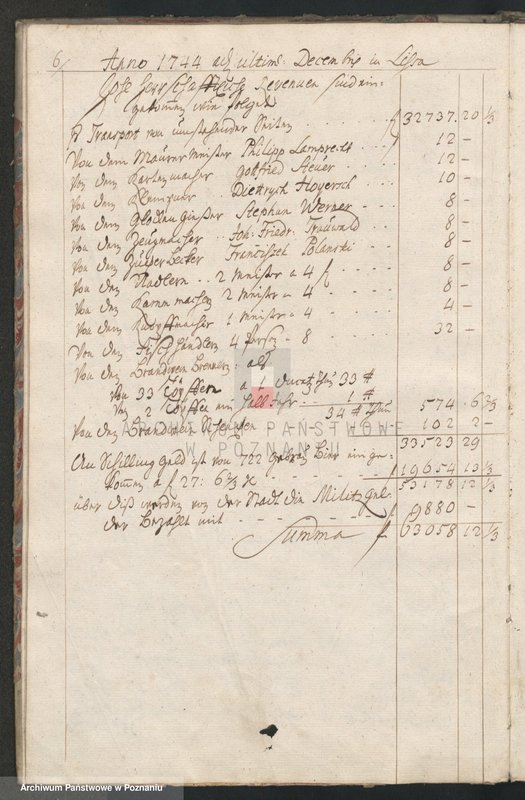 6/ Anno 1744 ad ultim: Decembris in Lissa
Hoch Herrschafftliche Revenuen sind ein=
gekommen wie folget
Transport von umstehender Seiten f 32737. 20 1/3
Von dem Maurer Meister Philipp Lamprecht 12 –
Von dem Kartenmacher Gottfried Steuer 12 –
Von dem Klempner Dietrych Hoyersch 10 –
Von dem Glocken gießer Stephan Werner 8 –
Von dem Zeugmacher Joh: Friedr: Trauvald 8 –
Von dem Zuckerbecker Franciszek Polanski 8 –
Von den Nadlern 2 Meister a 4 f 8 –
Von den Kammmachern 2 Meister a 4 8 –
Von dem 1 Meister a 4 4 –
Von den Fischhändlern 4 Persohn a 8 32 –
Von den Brandtwein Brennern: als
Von 33 Töpffen a 1 33 #
Von 2 Töpffen ein halb Jahr 1 #
34 # 574. 6 2/3
Von den Brandtwein 102 2 –
33523 29
An Schilling Geld ist von 722 Bier ein ge=
kommen a f 27: 6 2/3 19654 13 1/3
53178 12 1/3
über diß werden von der Stadt die Militz Gel=
der bezahlt mit f 9880 –
Summa f 63058 12 1/3
ARCHIWUM PAŃSTWOWE
W POZNANIU
Archiwum Państwowe w Poznaniu